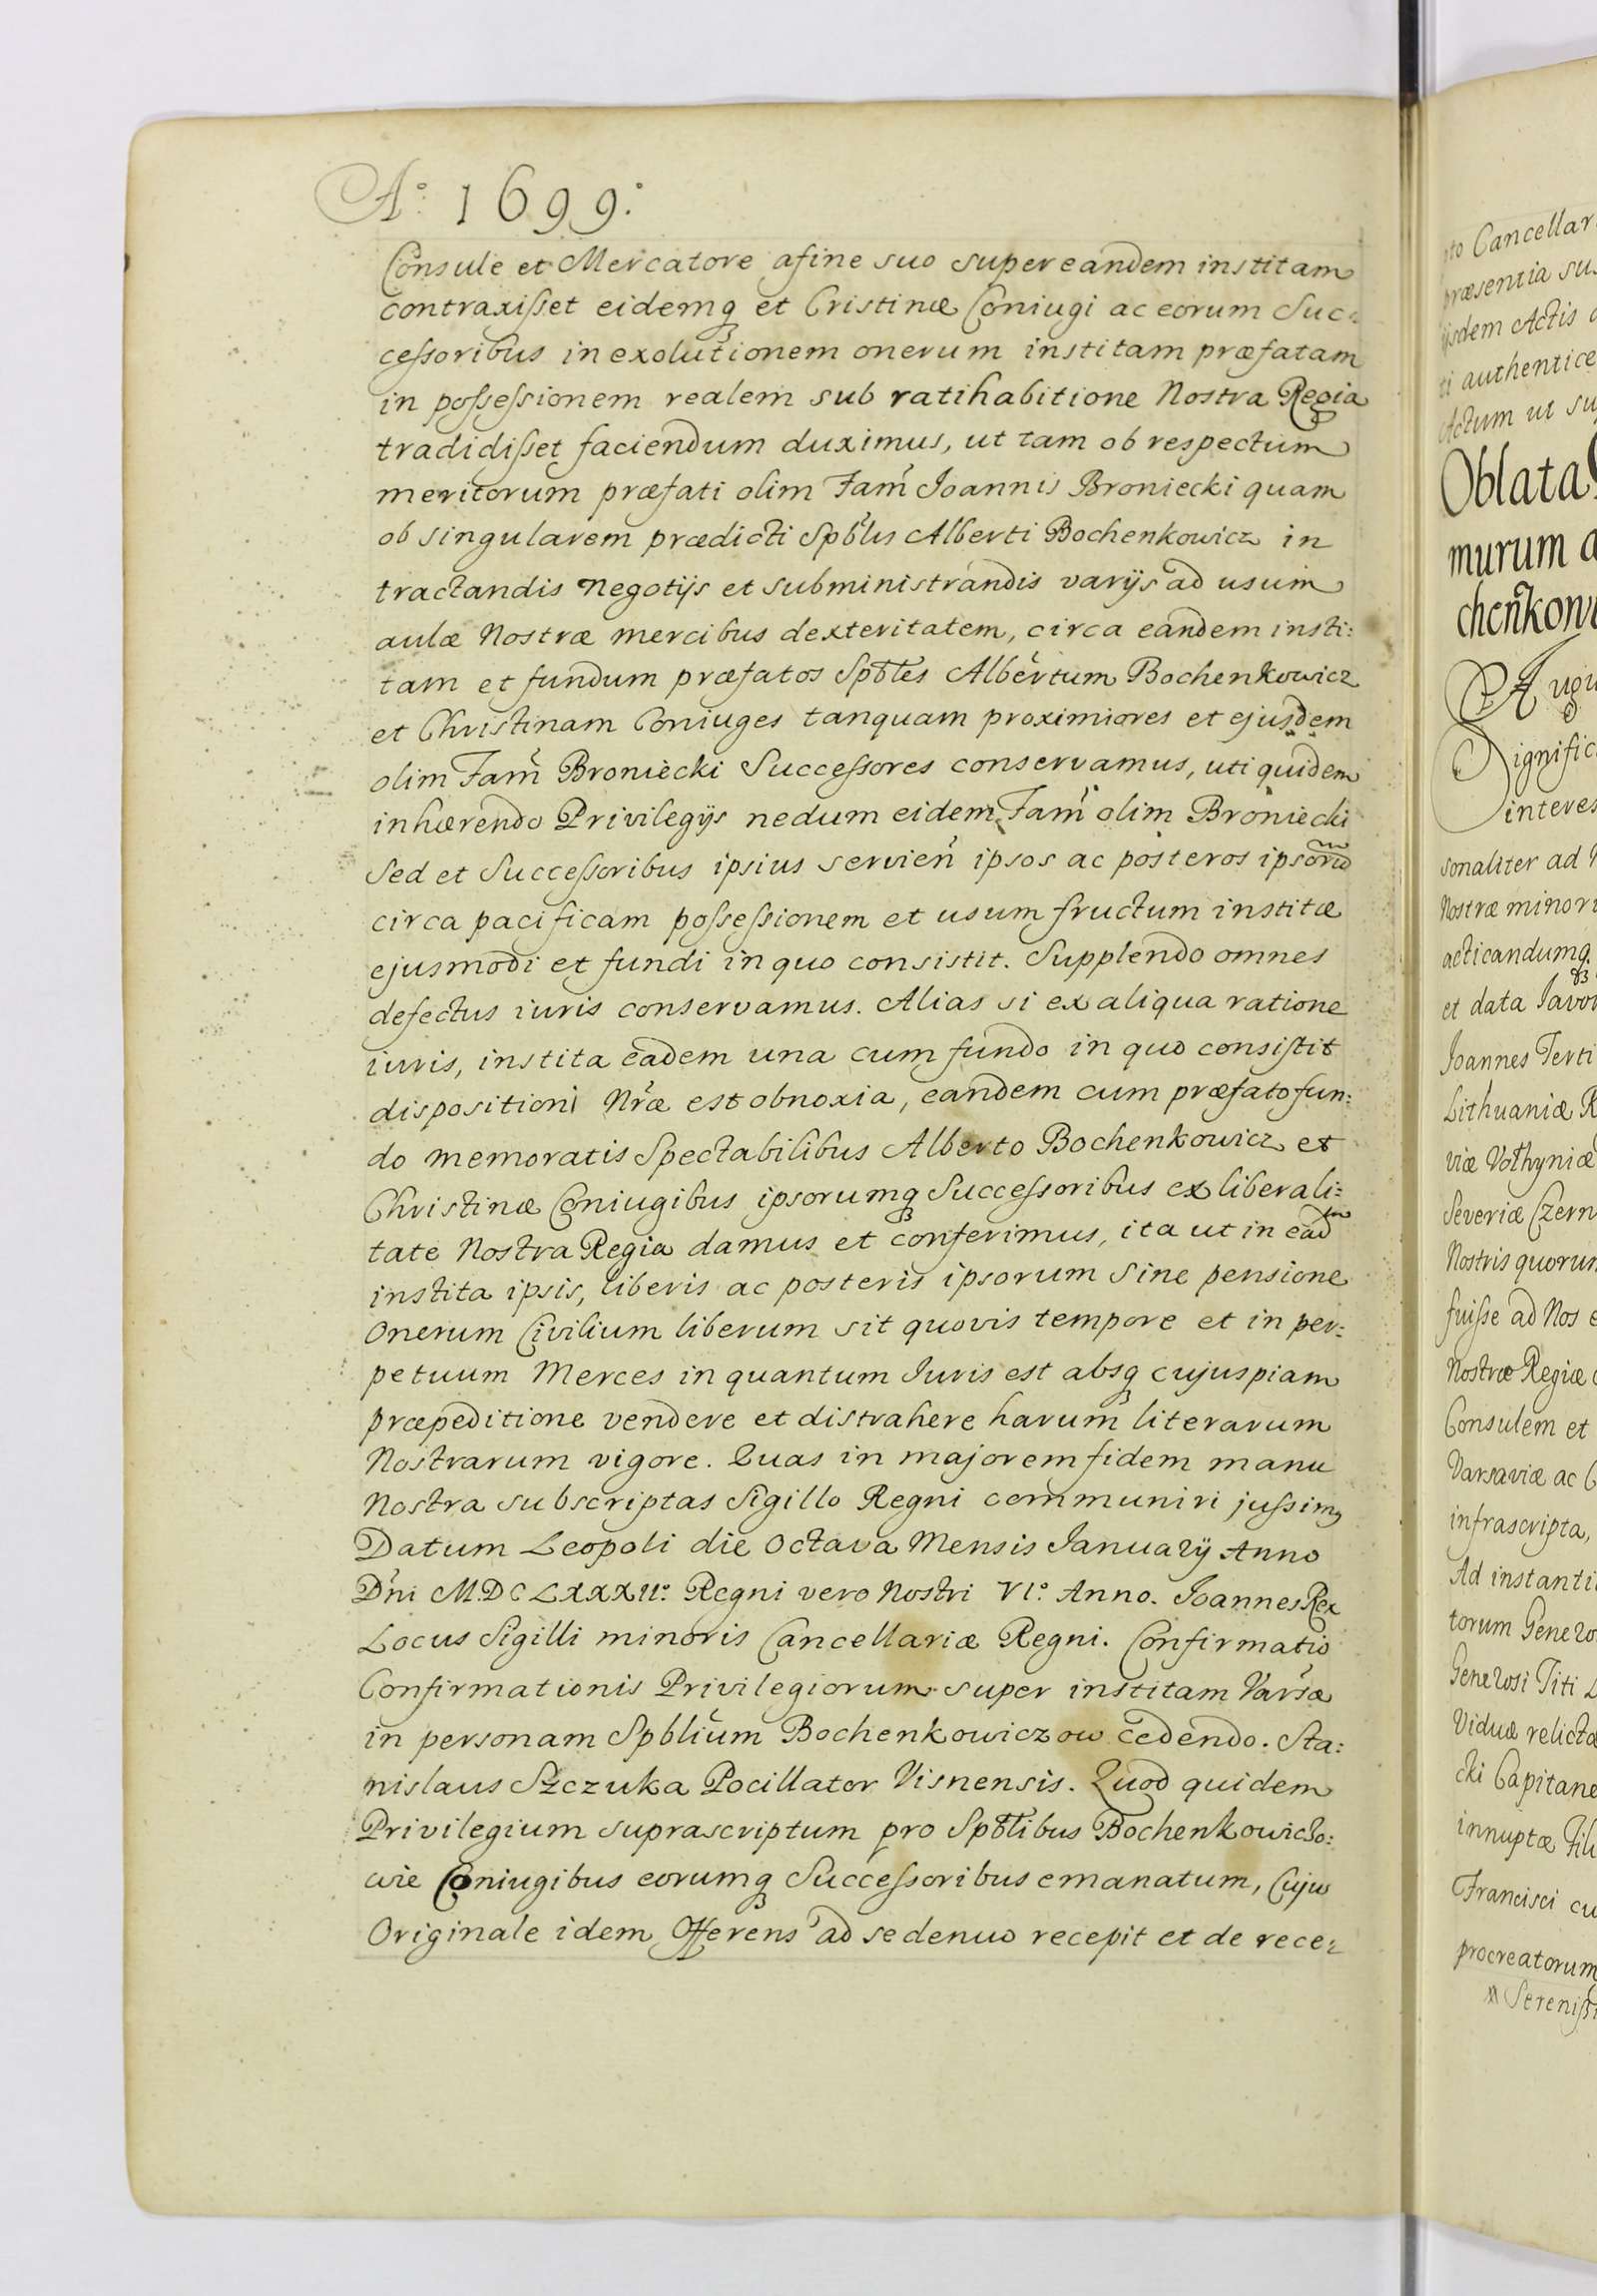 Aº 1699.
Consule et Mercatore afine suo super eandem institam
contraxisset eidemq₃ et Cristinæ Coniugi ac eorum Suc:
cessoribus in exolutionem onerum institam præfatam
in possessionem realem sub ratihabitione Nostra Regia
tradidisset faciendum duximus, ut tam ob respectum
meritorum præfati olim Fam̃ Joannis Broniecki quam
ob singularem prædicti Spb̃lis Alberti Bochenkowicz in
tractandis Negotijs et subministrandis varijs ad usum
aulæ Nostræ mercibus dexteritatem, circa eandem insti:
tam et fundum præfatos Spb̃les Albertum Bochenkowicz
et Christinam Coniuges tanquam proximiores et ejusdem
olim Fam̃ Broniecki Successores conservamus, uti quidem
inhærendo Privilegijs nedum eidem Fam̃ olim Broniecki
Sed et Successoribus ipsius servien̄ ipsos ac posteros ipsorũ
circa pacificam possessionem et usum fructum institæ
ejusmodi et fundi in quo consistit. Supplendo omnes
defectus iuris conservamus. Alias si ex aliqua ratione
iuris, instita eadem una cum fundo in quo consistit
dispositioni Nr̃æ est obnoxia, eandem cum præfato fun:
do memoratis Spectabilibus Alberto Bochenkowicz et
Christinæ Coniugibus ipsorumq₃ Successoribus ex liberali:
tate Nostra Regia damus et conferimus, ita ut in ead̃
instita ipsis, liberis ac posteris ipsorum Sine pensione
Onerum Civilium liberum sit quovis tempore et in per:
petuum Merces in quantum Iuris est absq₃ cujuspiam
præpeditione vendere et distrahere harum literarum
Nostrarum vigore. Quas in majorem fidem manu
Nostra subscriptas Sigillo Regni communiri jussim9
Datum Leopoli die Octava Mensis Januarÿ Anno
Dñi M.DCLXXXIIº. Regni vero Nostri VIº. Anno. Joannes Rex
Locus Sigilli minoris Cancellariæ Regni. Confirmatio
Confirmationis Privilegiorum super institam Varsæ
in personam Spblium Bochenkowiczow cedendo. Sta:
nislaus Szczuka Pocillator Visnensis. Quod quidem
Privilegium suprascriptum pro Spb̃libus Bochenkowiczo:
wie Coniugibus eorumq₃ Successoribus emanatum, Cujus
Originale idem Offerens ad se denuo recepit et de rece:
Cancellar
præsentia
Actis
authentice
Actum ut
Oblata
murum
interes
sonaliter ad
Nostræ
acticandumq₃
et data
Joannes Terti
Lithuaniæ
Severiæ Czern
Nostris quorum
fuisse ad Nos
Nostræ Regiæ
Consulem et
Varsaviæ ac
infrascripta,
Ad instanti
torum
Titi
Viduæ relictæ
cki Capitane
innuptæ
Francisci cu
procreatorum